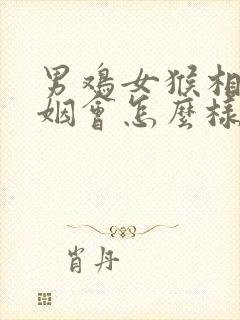 男鸡女猴相
姻會怎麼樣
肖丹